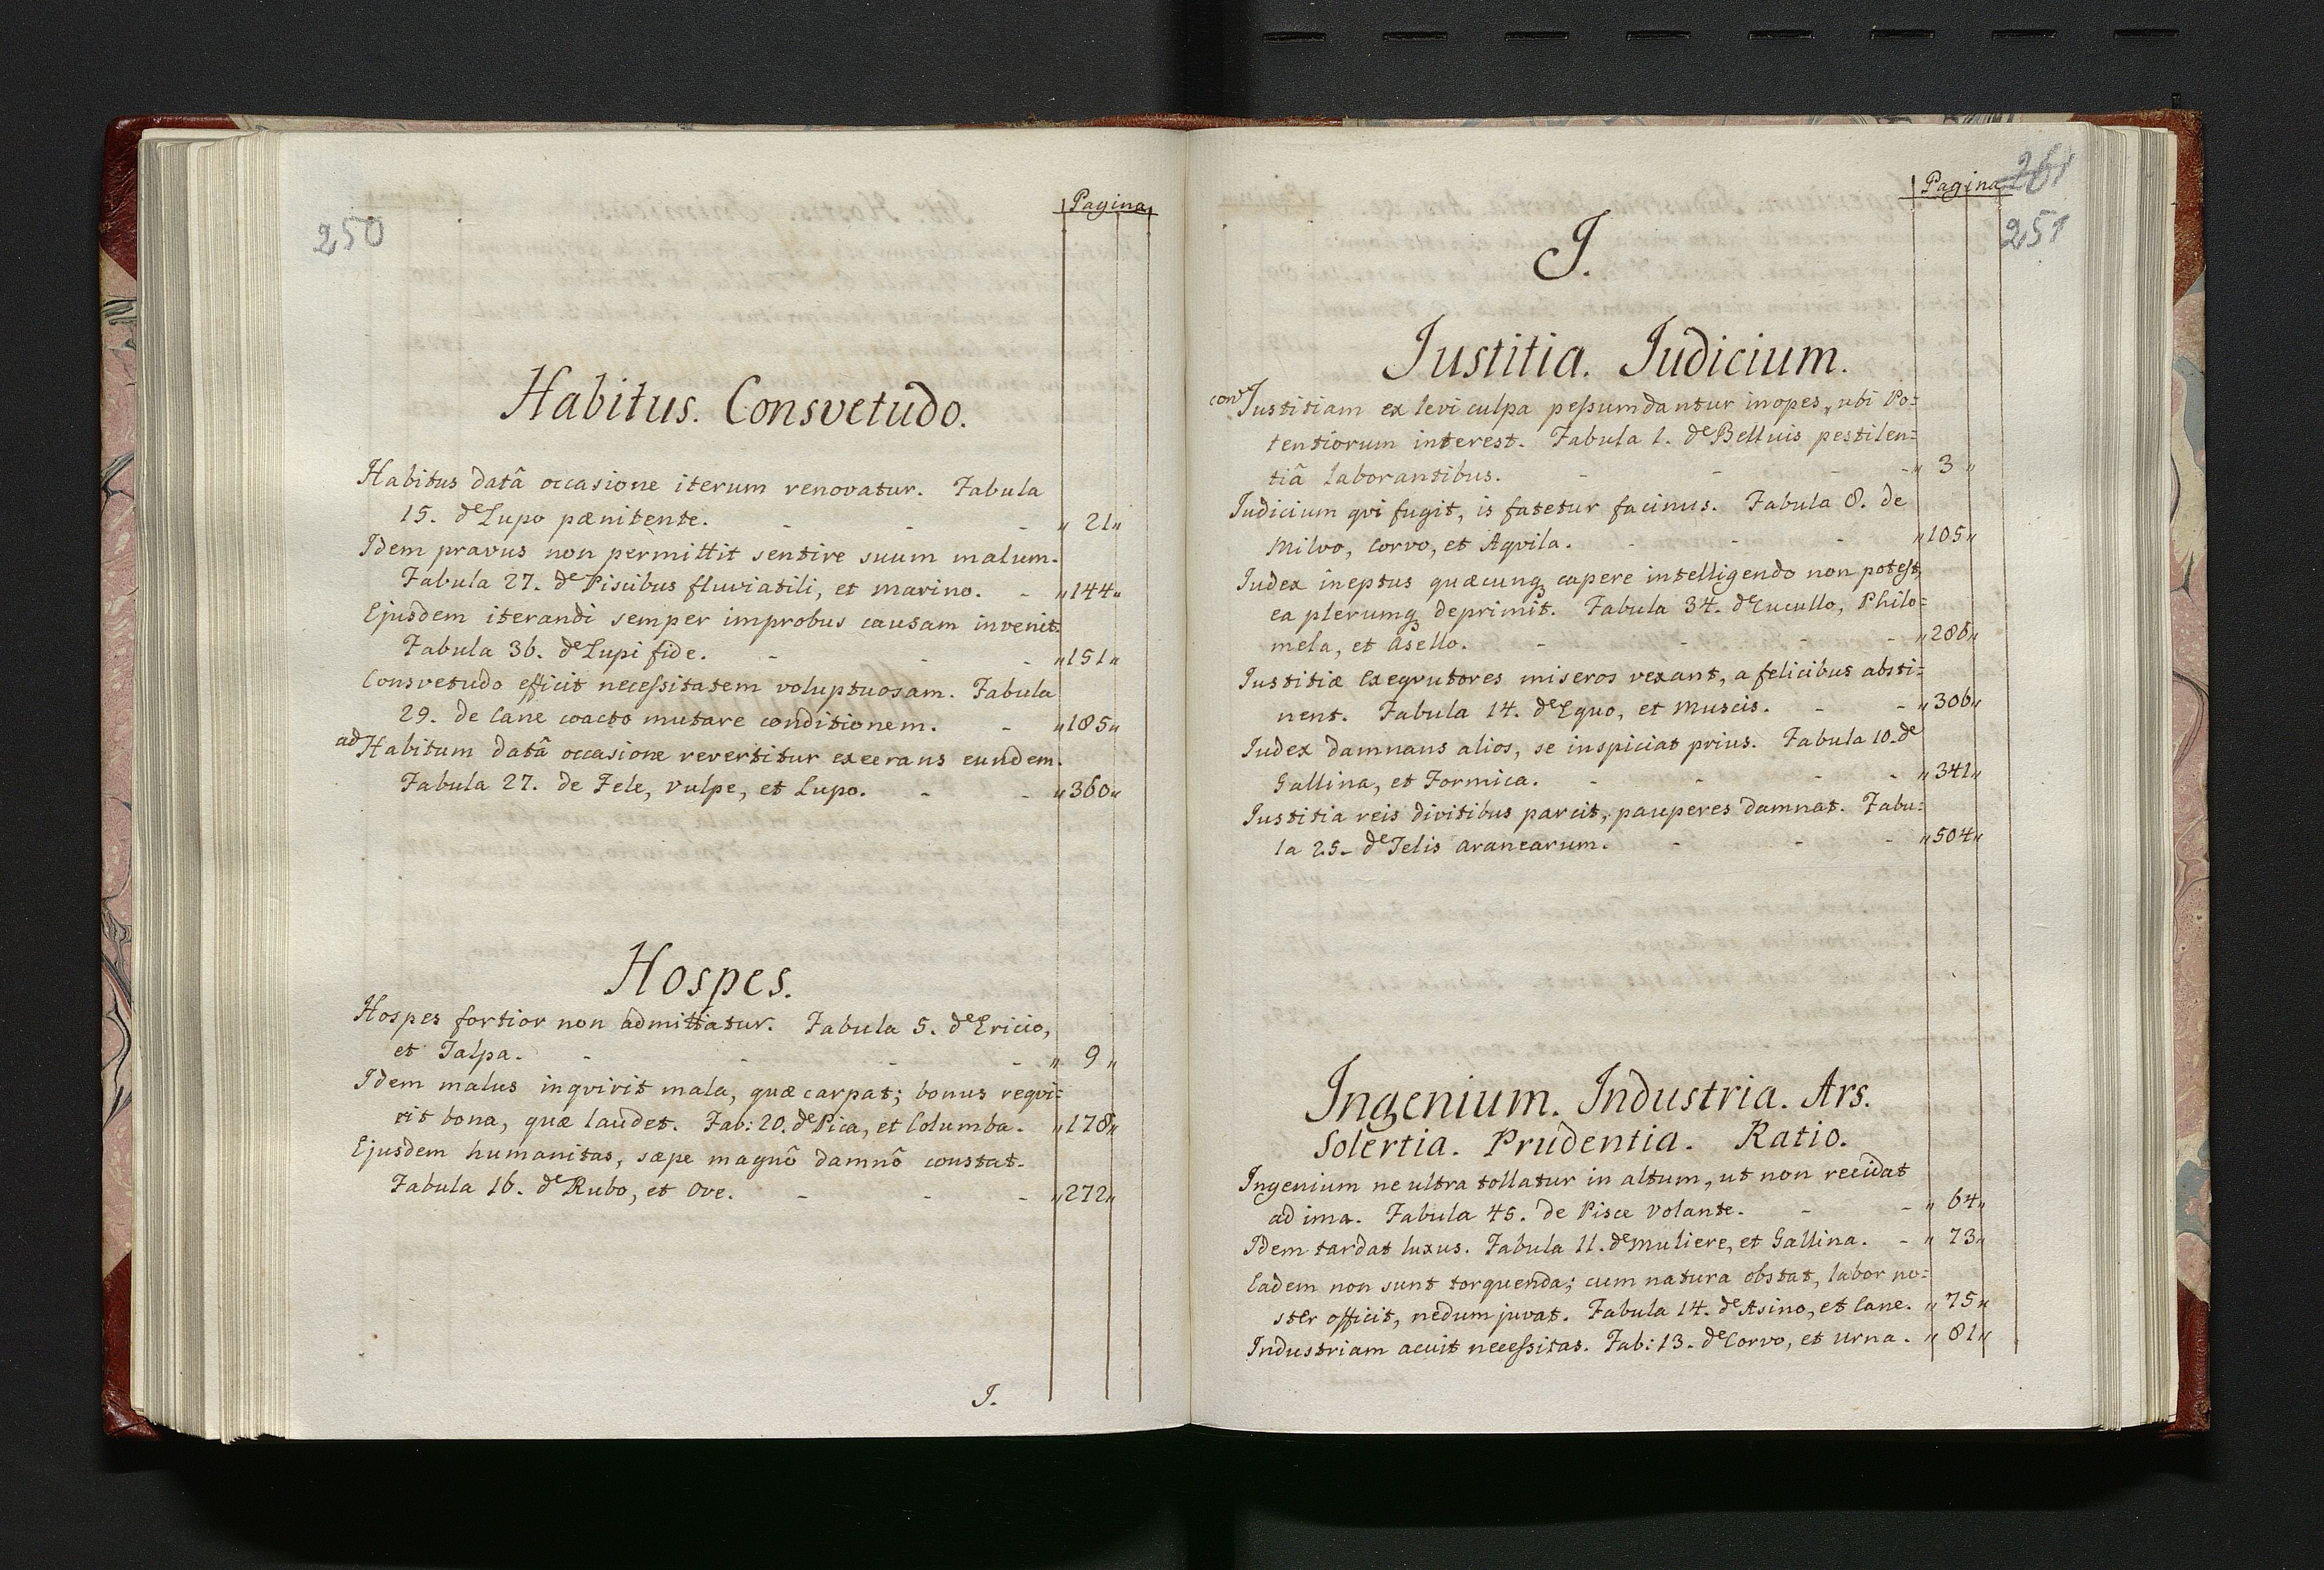 250
Pagina
Habitus. Consvetudo.
Habitus datâ occasione iterum renovatur. Fabula
15. de Lupo pænitente. - - - „ 21„
Idem pravus non permittit sentire suum malum.
Fabula 27. de Piscibus fluviatili, et marino. - „144„
Ejusdem iterandi semper improbus causam invenit.
Fabula 36. de Lupi fide. - - - „151„
Consvetudo efficit necessitatem voluptuosam. Fabula
29. de Cane coacto mutare conditionem. - „185„
ad Habitum datâ occasione revertitur execrans eundem.
Fabula 27. de Fele, Vulpe, et Lupo. - - „360„
Hospes.
Hospes fortior non admittatur. Fabula 5. de Ericio,
et Talpa. - - - - „ 9 „
Idem malus inqvirit mala, quæ carpat; bonus reqvi=
rit bona, quæ laudet. Fab: 20. de Pica, et Columba. „178„
Ejusdem humanitas, sæpe magnô damnô constat.
Fabula 16. de Rubo, et Ove. - - - „272„
I.
Pagina
261
251
I.
Iustitia. Iudicium.
con Iustitiam ex levi culpa pessumdantur inopes, ubi Po=
tentiorum interest. Fabula 1. de Belluis pestilen=
tiâ laborantibus. - - - - „ 3 „
Iudicium qvi fugit, is fatetur facinus. Fabula 8. de
Milvo, Corvo, et Aqvila. - - - „105„
Iudex ineptus quæcunq capere intelligendo non potest,
ea plerumq deprimit. Fabula 34. de Cucullo, Philo=
mela, et Asello. - - - - „286„
Iustitiæ Exeqvutores miseros vexant, a felicibus absti=
nent. Fabula 14. de Equo, et Muscis. - - „306„
Iudex damnans alios, se inspiciat prius. Fabula 10. de
Gallina, et Formica. - - - - „341„
Iustitia reis divitibus parcit, pauperes damnat. Fabu=
la 25. de Telis Aranearum. - - - „504„
Ingenium. Industria. Ars.
Solertia. Prudentia. Ratio.
Ingenium ne ultra tollatur in altum, ut non recidat
ad ima. Fabula 45. de Pisce Volante. - - „ 64„
Idem tardat luxus. Fabula 11. de Muliere, et Gallina. - „ 73„
Eadem non sunt torquenda; cum natura obstat, labor no=
ster officit, nedum juvat. Fabula 14. de Asino, et Cane. „ 75„
Industriam acuit necessitas. Fab: 13. de Corvo, et Urna. „ 81„